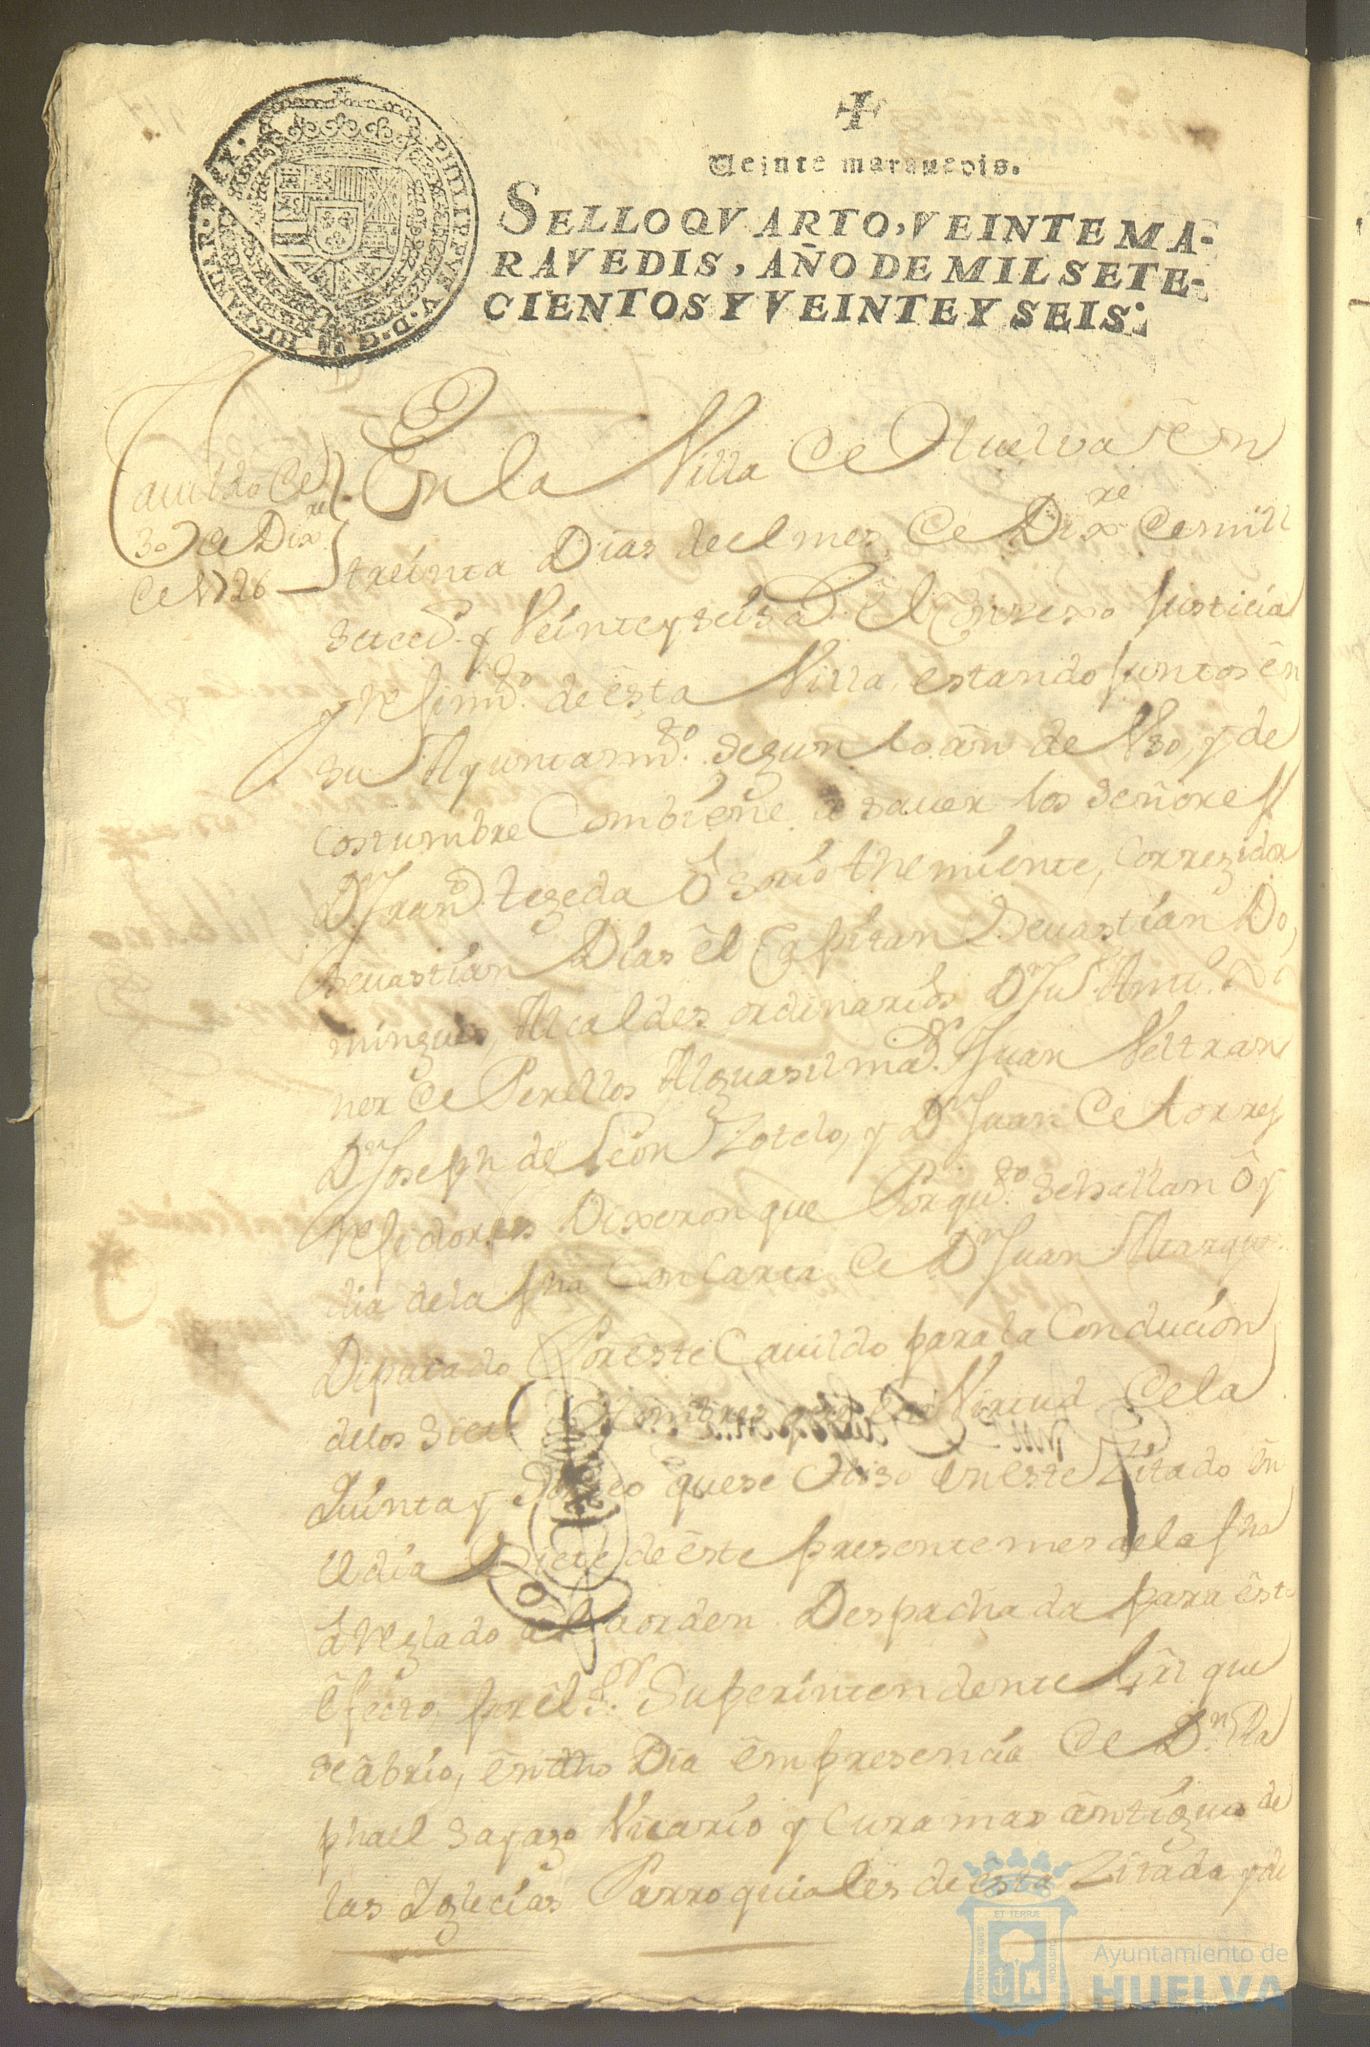 PHILIPPVS V. D. G. HISPANIAR. REX.
✠
Veinte marauedis.
SELLO QVARTO, VEINTE MA-
RAVEDIS, AÑO DE MIL SETE-
CIENTOS Y VEINTE Y SEIS:
Cauildo de
30 de Dix.re
de 1726
En la Villa de Huelva ēn
treinta Dias de el mes de Dix.re de mill
setecd. y Veinte y seis a.s El Conzexo Justicia
y Resimd.to de ēsta Villa, estando Juntos ēn
su Ayuntamd.to segun lo ān de Vso, y de
costumbre Combiene à sauer los Señores
D. Fran.co tezeda Ôsorio theniente, Corregidor
Seuastian Dias ēl Capitan Seuastian Do,
minguez, Alcaldes ordinarios Dn Ju Ant.
ner de Perellos Alguasil ma.or Juan Veltran
Dn Joseph de Leon Zotelo, y Dn Juan de torres
Residores Dixeron que Por qd.to se hallan ôy
dia de la fha Con Carta de Dn Juan Marquez
Diputado Por este Cauildo para la Conducion
de los Siete hombres que en Virtud de la
Quinta y Sorteo que se hiso en este Zitado ēn
el dia Siete de ēste presente mes de la fha
à Reglado a la orden Despachada para ēste
ēfecto, por ēl S.or Superintendente que
se àbrio, ēn dho Dia ēn presencia de D.n Ra
phael Sayago Vicario y Cura mas āntiguo de
las Yglecias Parroquiales de ēsta Zitada y de
Ayuntamiento de
HUELVA